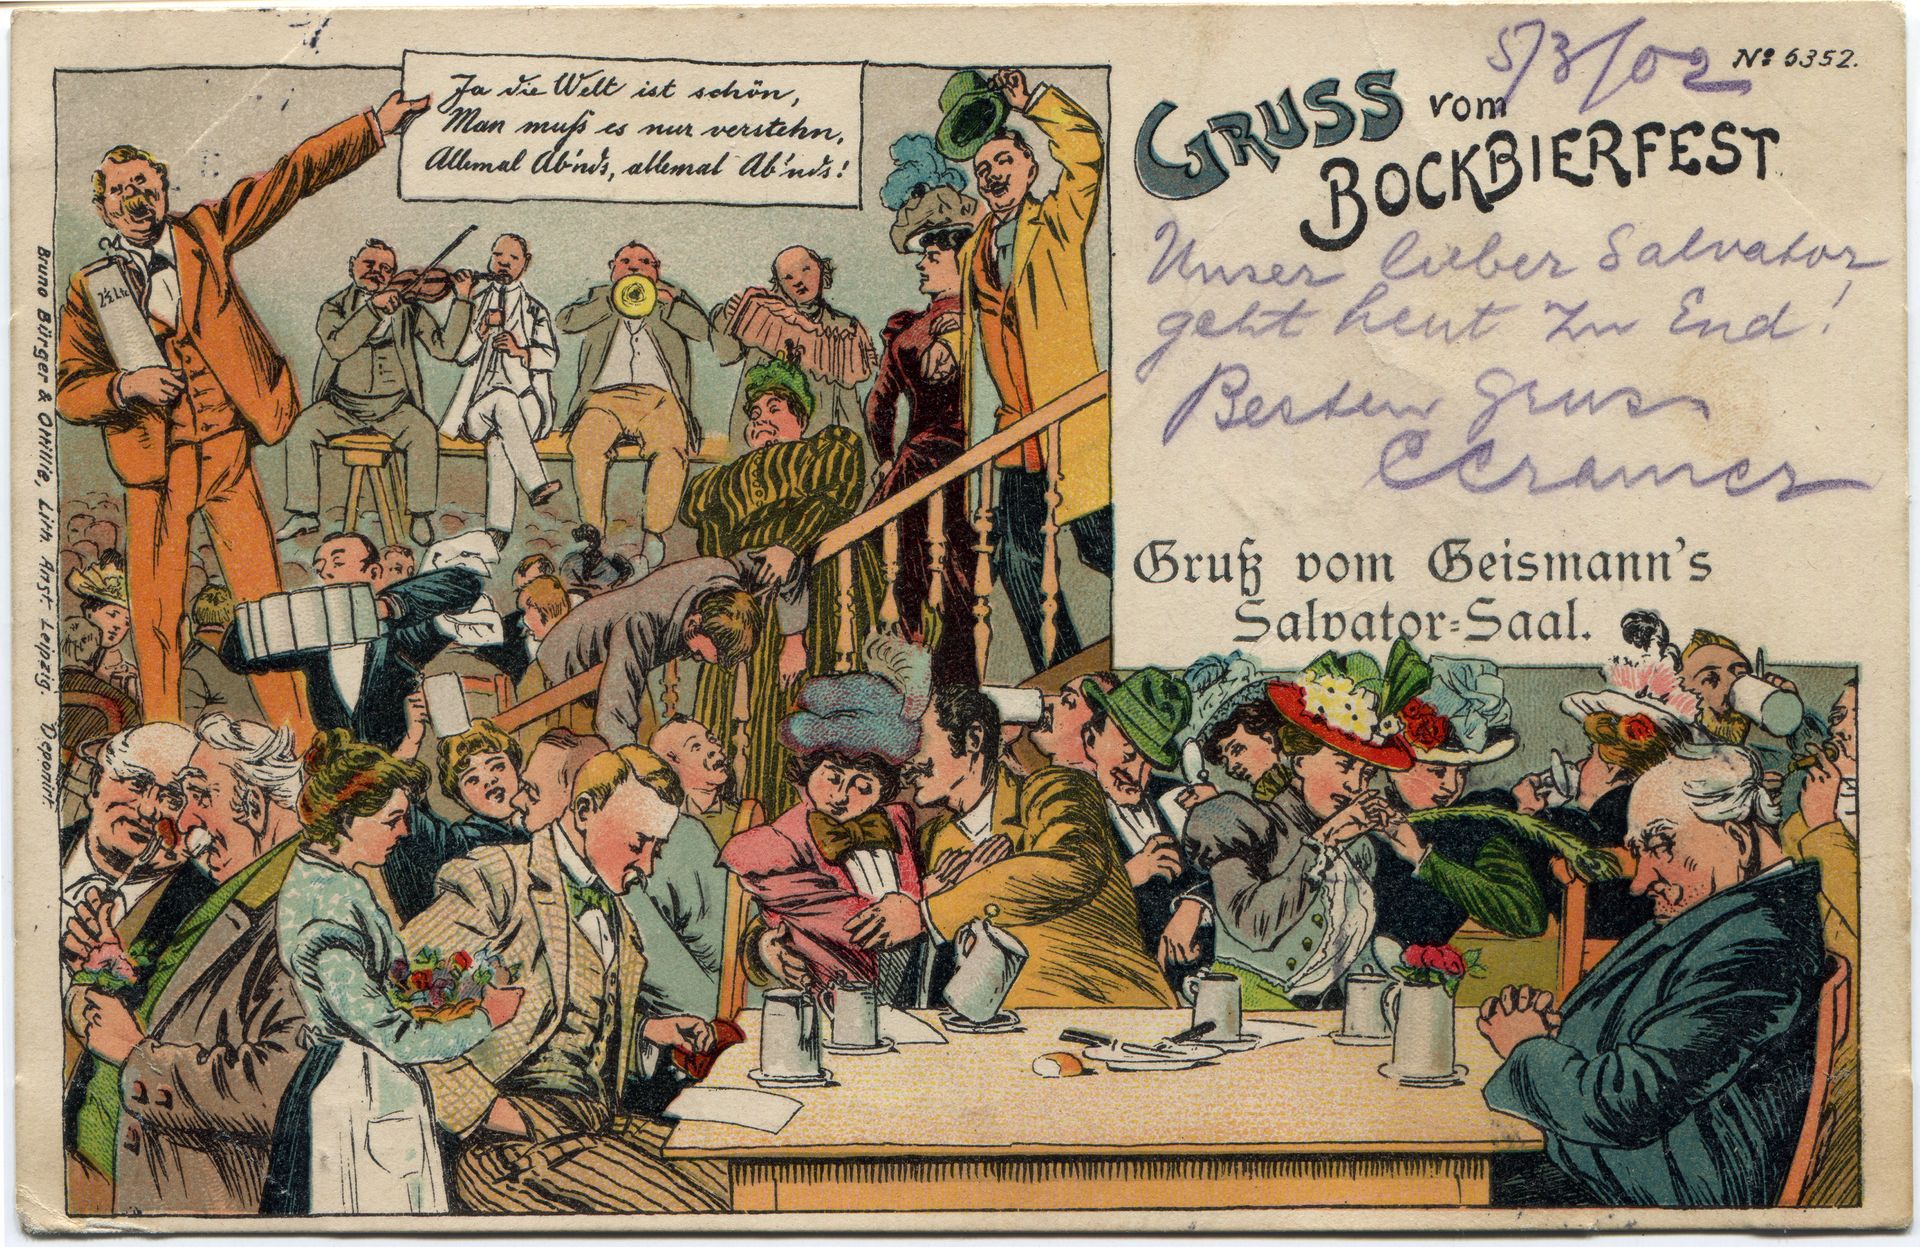 Ja die Welt ist schön,
Man muß es nur verstehn,
Allemal Ab'nds, allemal Ab'nds!
2½ Ltr.
Bruno Bürger & Ottillie, Lith. Anst. Leipzig. Deponirt.
No 6352.
5/3/02
GRUSS vom
BOCKBIERFEST
Unser lieber Salvator
geht heut zu End!
Besten Gruss
CCramer
Gruß vom Geismann's
Salvator=Saal.